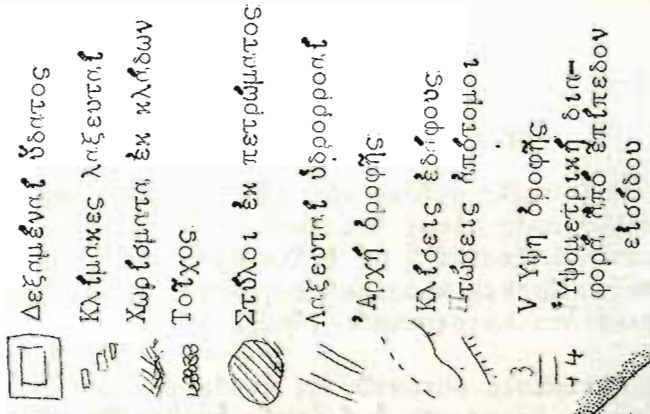 Δεξαμέναί ὕδατος
Κλίμακες λαξευταί
Χωρίσματα ἐκ κλάδων
Τοῖχος
Στῦλοι ἐκ πετρώματος
Λαξευταί ὑδρορροαί
Ἀρχή ὀροφῆς
Κλίσεις ἐδάφους
Πτώσεις ἀπότομοι
V Ὕψη ὀροφῆς
+4 Ὑψομετρική δια-
φορά ἀπό ἐπίπεδον
εἰσόδου